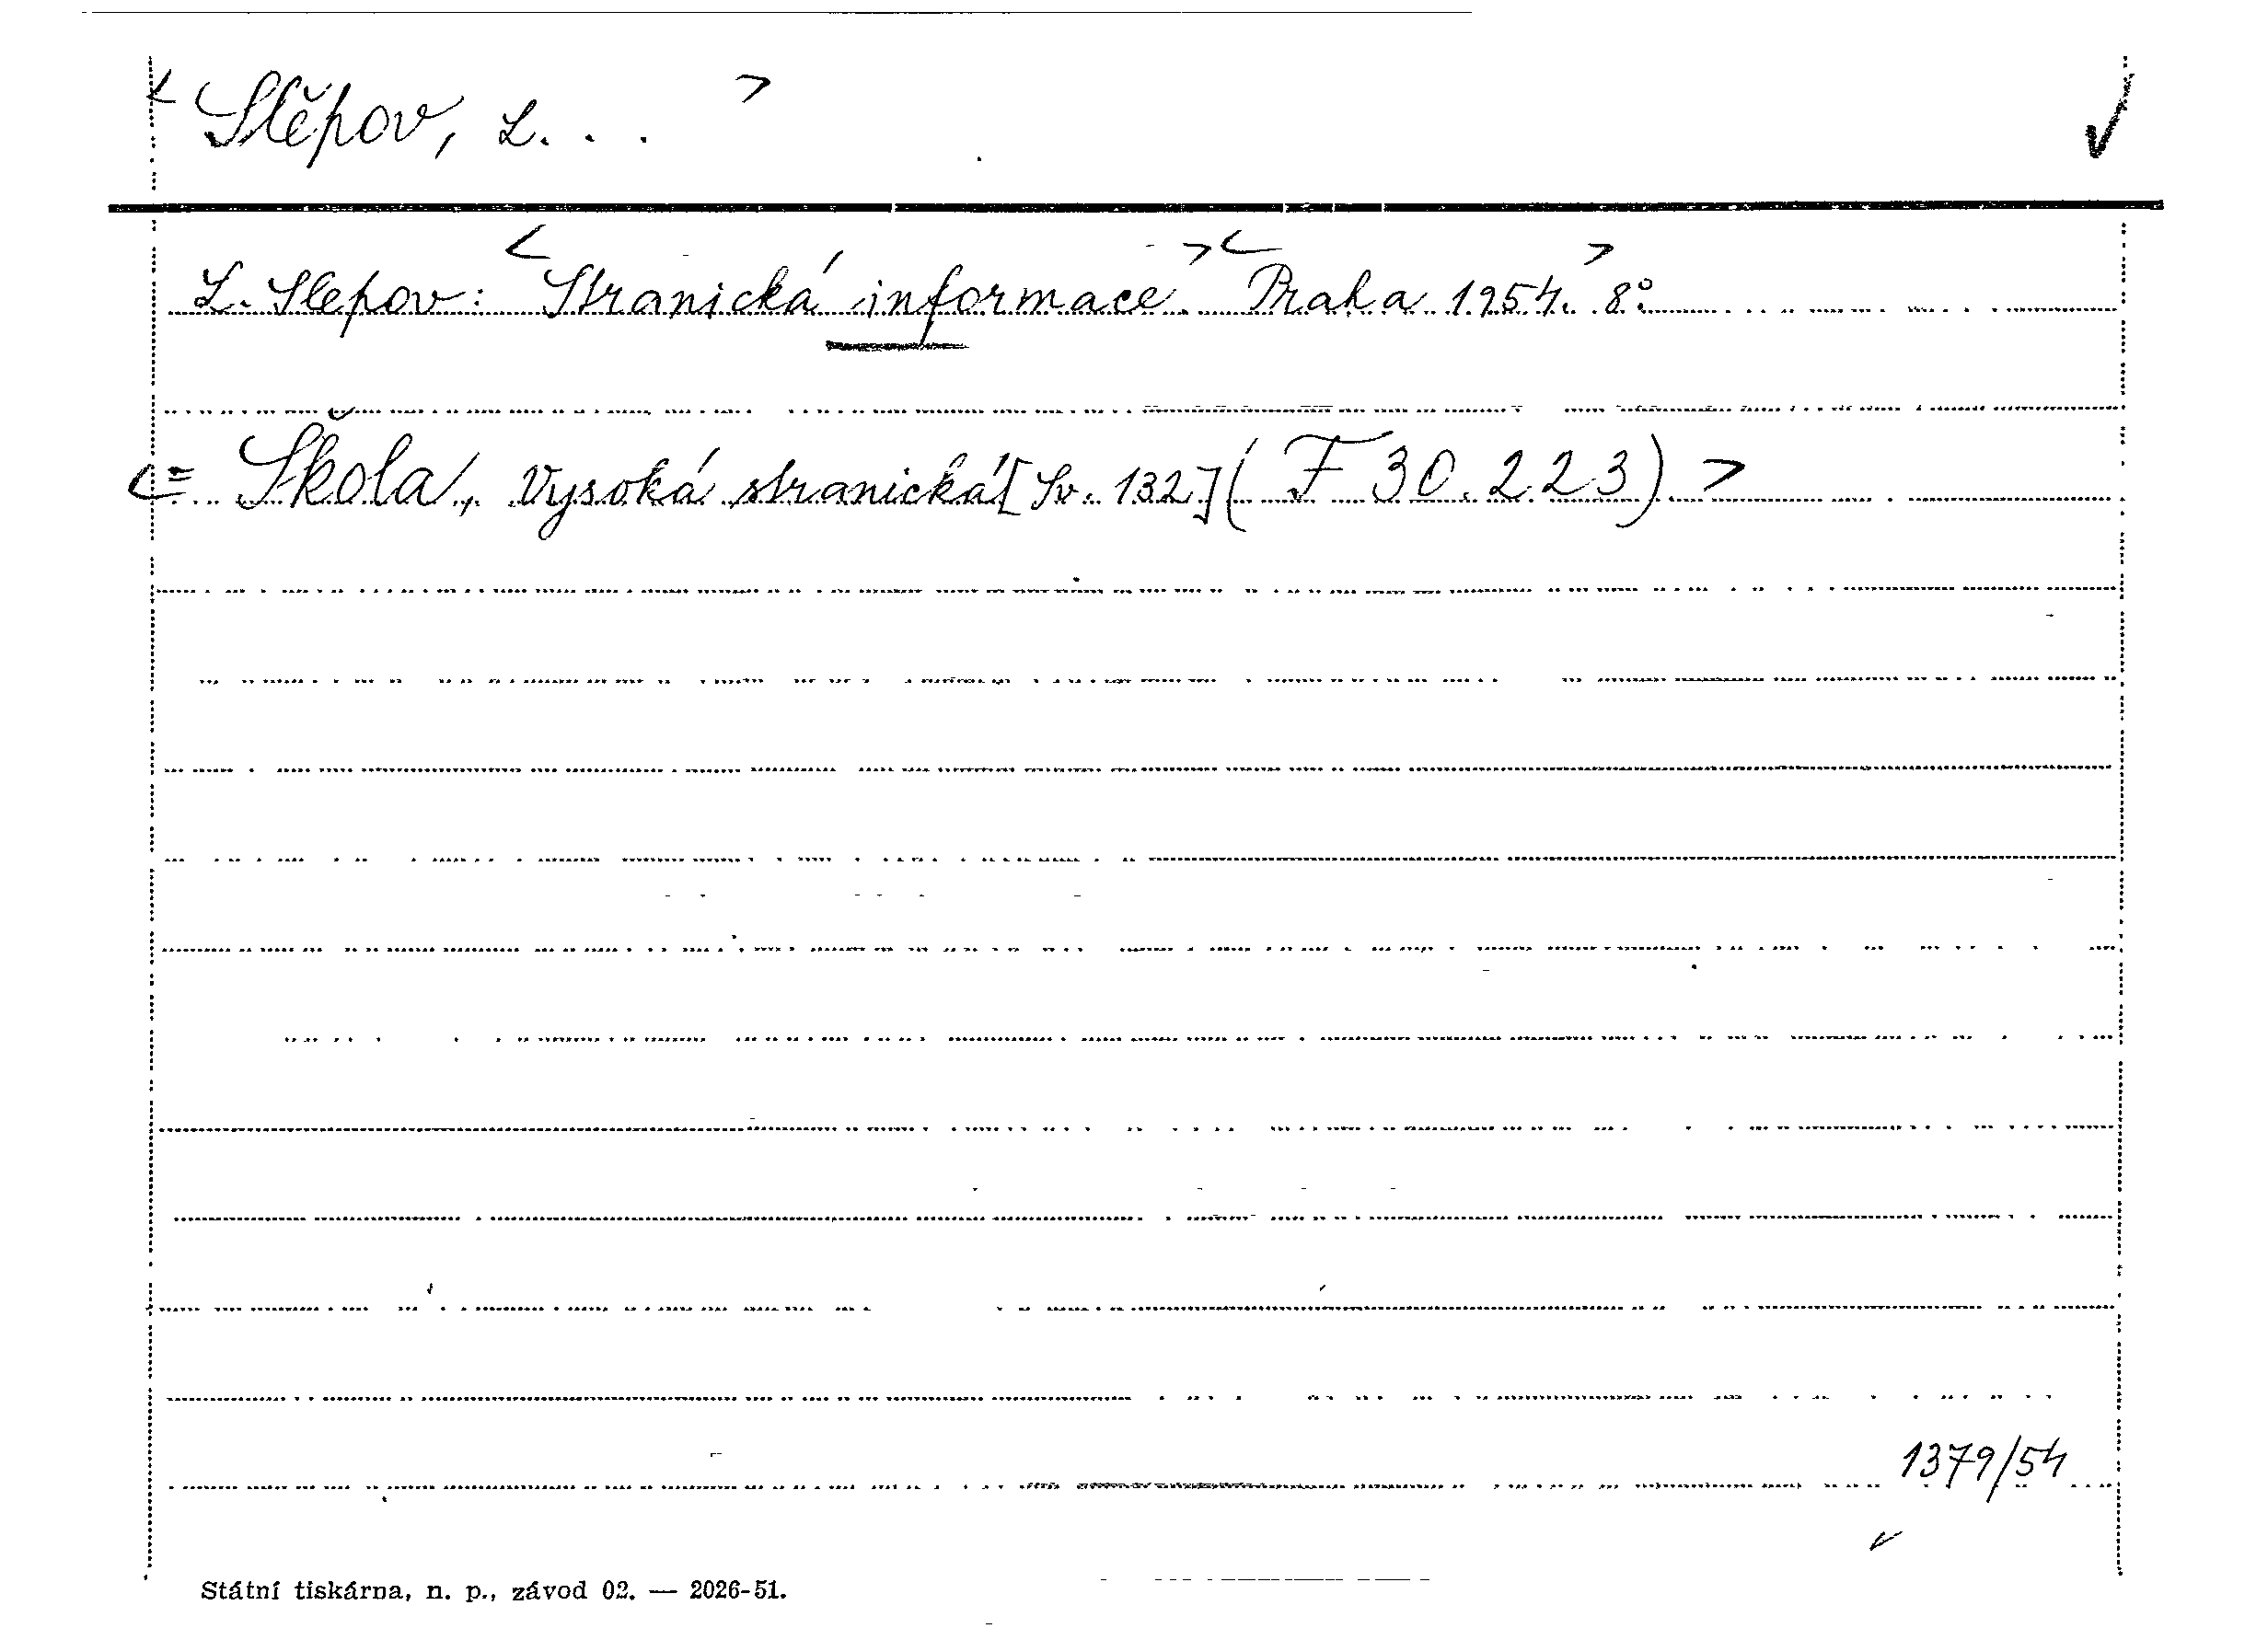 < Slěpov, L. . . >
L. Slepov: <Stranická informace.> <Praha 1954.> 8°.
<= Škola, Vysoká stranická [Sv. 132] (F 30.223) >
1379/54
Státní tiskárna, n. p., závod 02. — 2026-51.